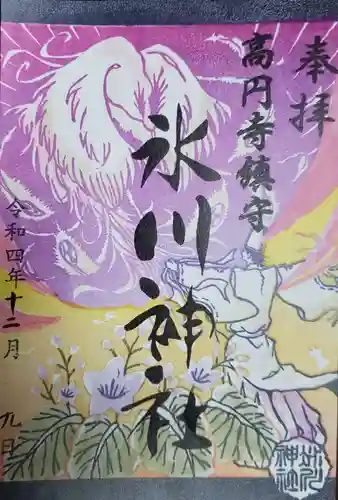 奉拝
高円寺鎮守
氷川神社
令和四年十二月 九日
氷川
神社